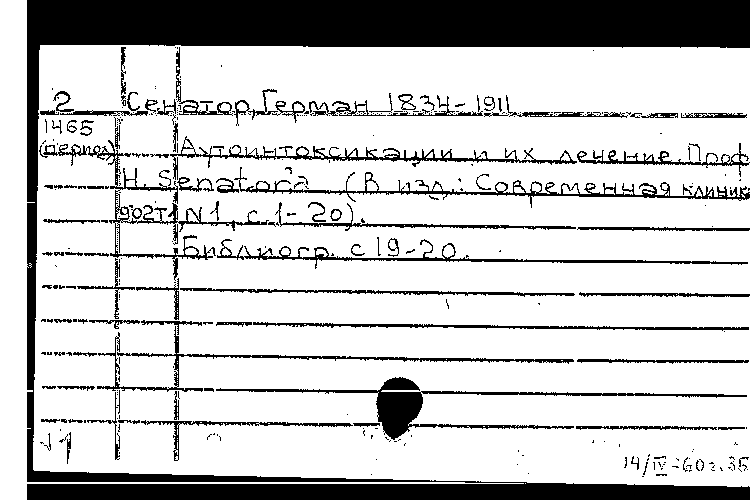 2 Сенатор, Герман 1834-1911
1465
(период) Аутоинтоксикации и их лечение. Проф
H. Senator'а (В изд.: Современная клиник
902т1, N1, с. 1-20).
Библиогр. с 19-20.
14/IV-60г. 35